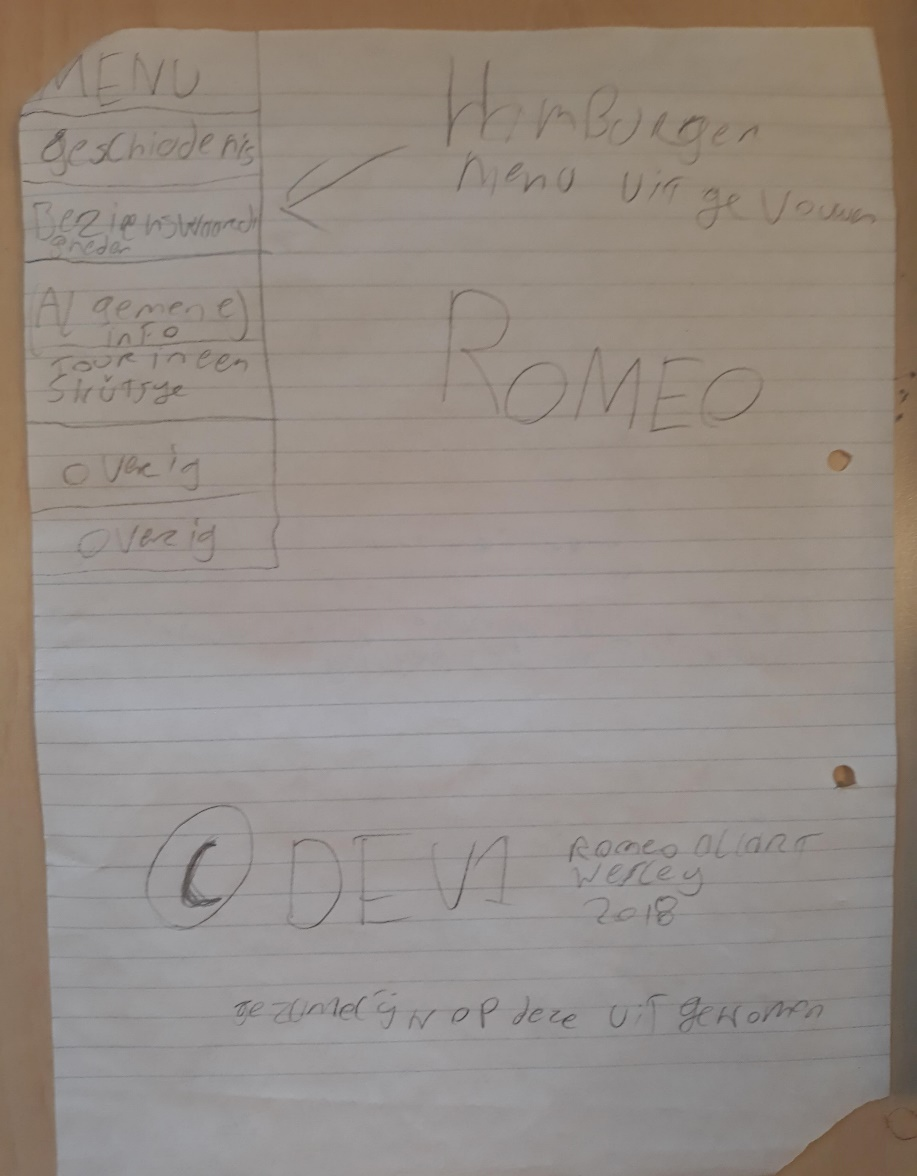 MENU
geschiedenis
Bezienswaardi
gheden
Algemene
info
Tour in een
Skûtsje
overig
overig
Hamburger
menu uit gevouwen
ROMEO
© DEV1
Romeo Olient
Wesley
2018
gezamelijk op deze uit gekomen